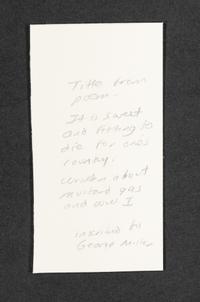 Title from
poem -
It is sweet
and fitting to
die for ones
country.
written about
mustard gas
and WW I
inscribed to
George Miller